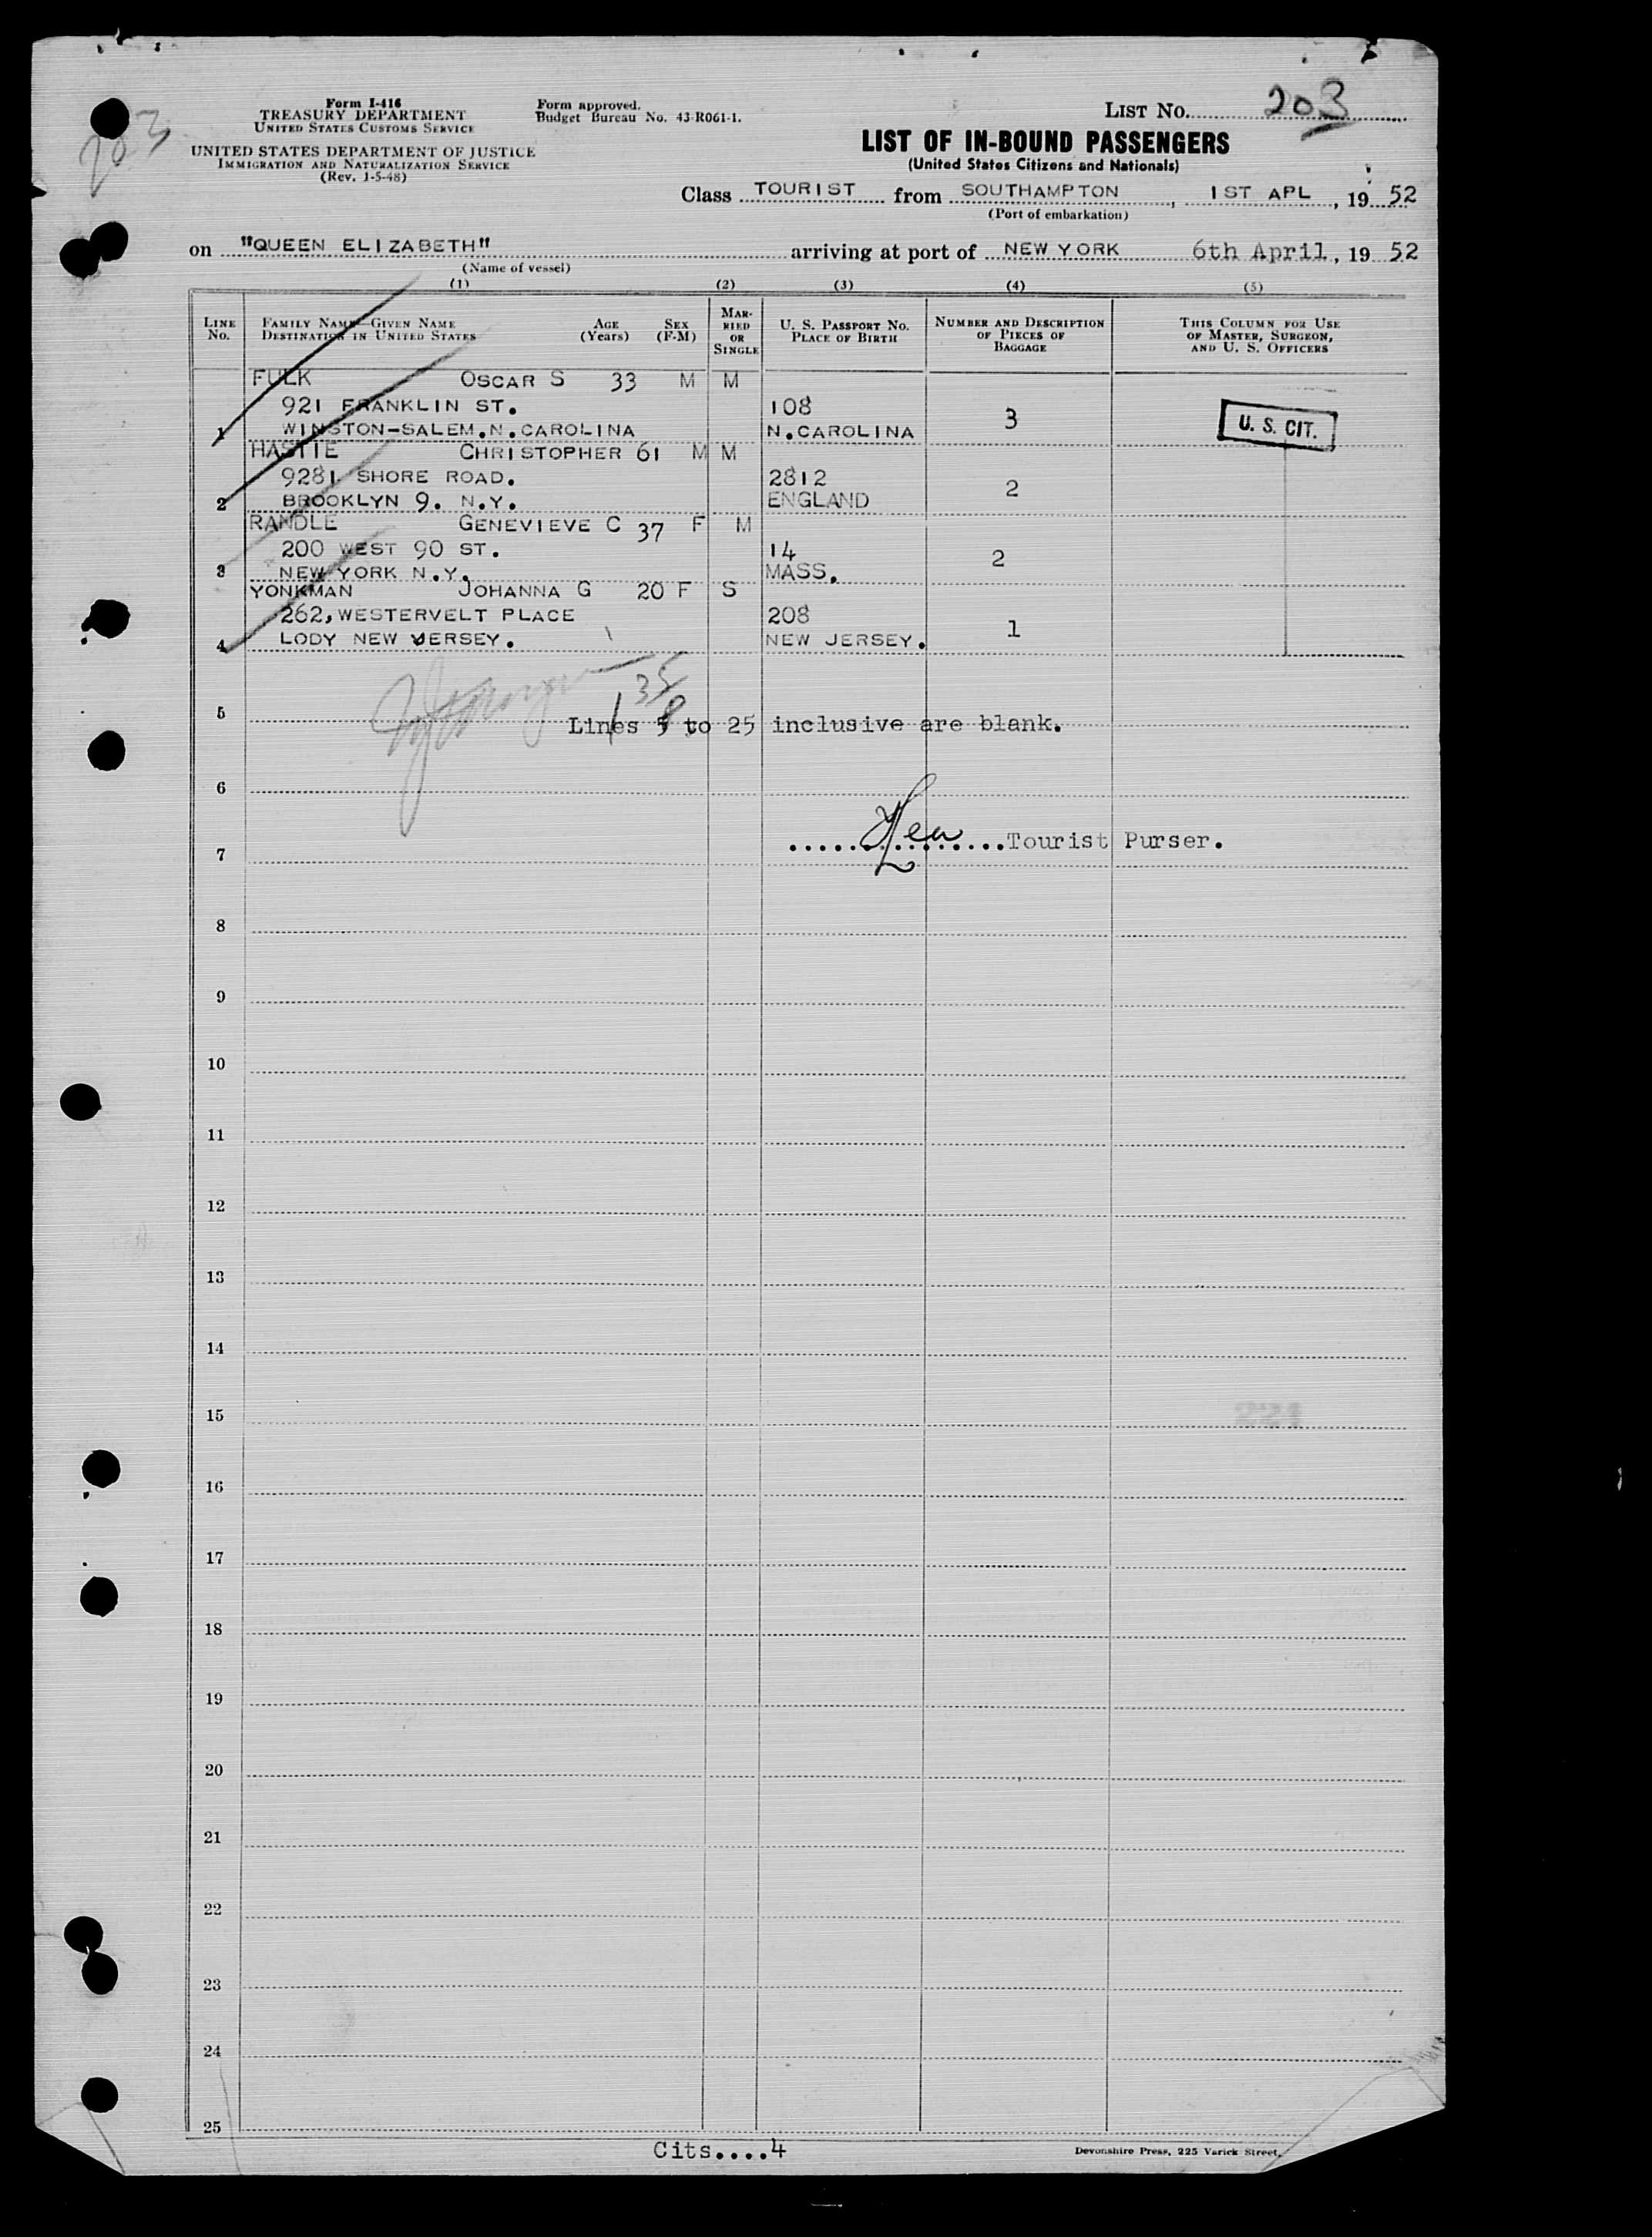 Form I-416
TREASURY DEPARTMENT
UNITED STATES CUSTOMS SERVICE
UNITED STATES DEPARTMENT OF JUSTICE
IMMIGRATION AND NATURALIZATION SERVICE
(Rev. 1-5-48)
Form approved.
Budget Bureau No. 43-R061-1.
203
LIST No. 203
LIST OF IN-BOUND PASSENGERS
(United States Citizens and Nationals)
Class TOURIST from SOUTHAMPTON, 1ST APL, 19 52
(Port of embarkation)
on "QUEEN ELIZABETH" arriving at port of NEW YORK 6th April, 19 52
(Name of vessel)
(1) (2) (3) (4) (5)
LINE No. FAMILY NAME—GIVEN NAME DESTINATION IN UNITED STATES AGE (Years) SEX (F-M) MARRIED OR SINGLE U. S. PASSPORT No. PLACE OF BIRTH NUMBER AND DESCRIPTION OF PIECES OF BAGGAGE THIS COLUMN FOR USE OF MASTER, SURGEON, AND U. S. OFFICERS
FULK OSCAR S 33 M M
921 FRANKLIN ST. 108 3 U. S. CIT.
1 WINSTON-SALEM.N.CAROLINA N.CAROLINA
HASTIE CHRISTOPHER 61 M M
9281 SHORE ROAD. 2812 2
2 BROOKLYN 9. N.Y. ENGLAND
RANDLE GENEVIEVE C 37 F M
200 WEST 90 ST. 14 2
3 NEW YORK N.Y. MASS.
YONKMAN JOHANNA G 20 F S
262,WESTERVELT PLACE 208 1
4 LODY NEW JERSEY. NEW JERSEY.
35
8
5 Lines 5 to 25 inclusive are blank.
6
7 Tourist Purser.
8
9
10
11
12
13
14
15
221
16
17
18
19
20
21
22
23
24
25
Cits....4
Devonshire Press, 225 Varick Street,